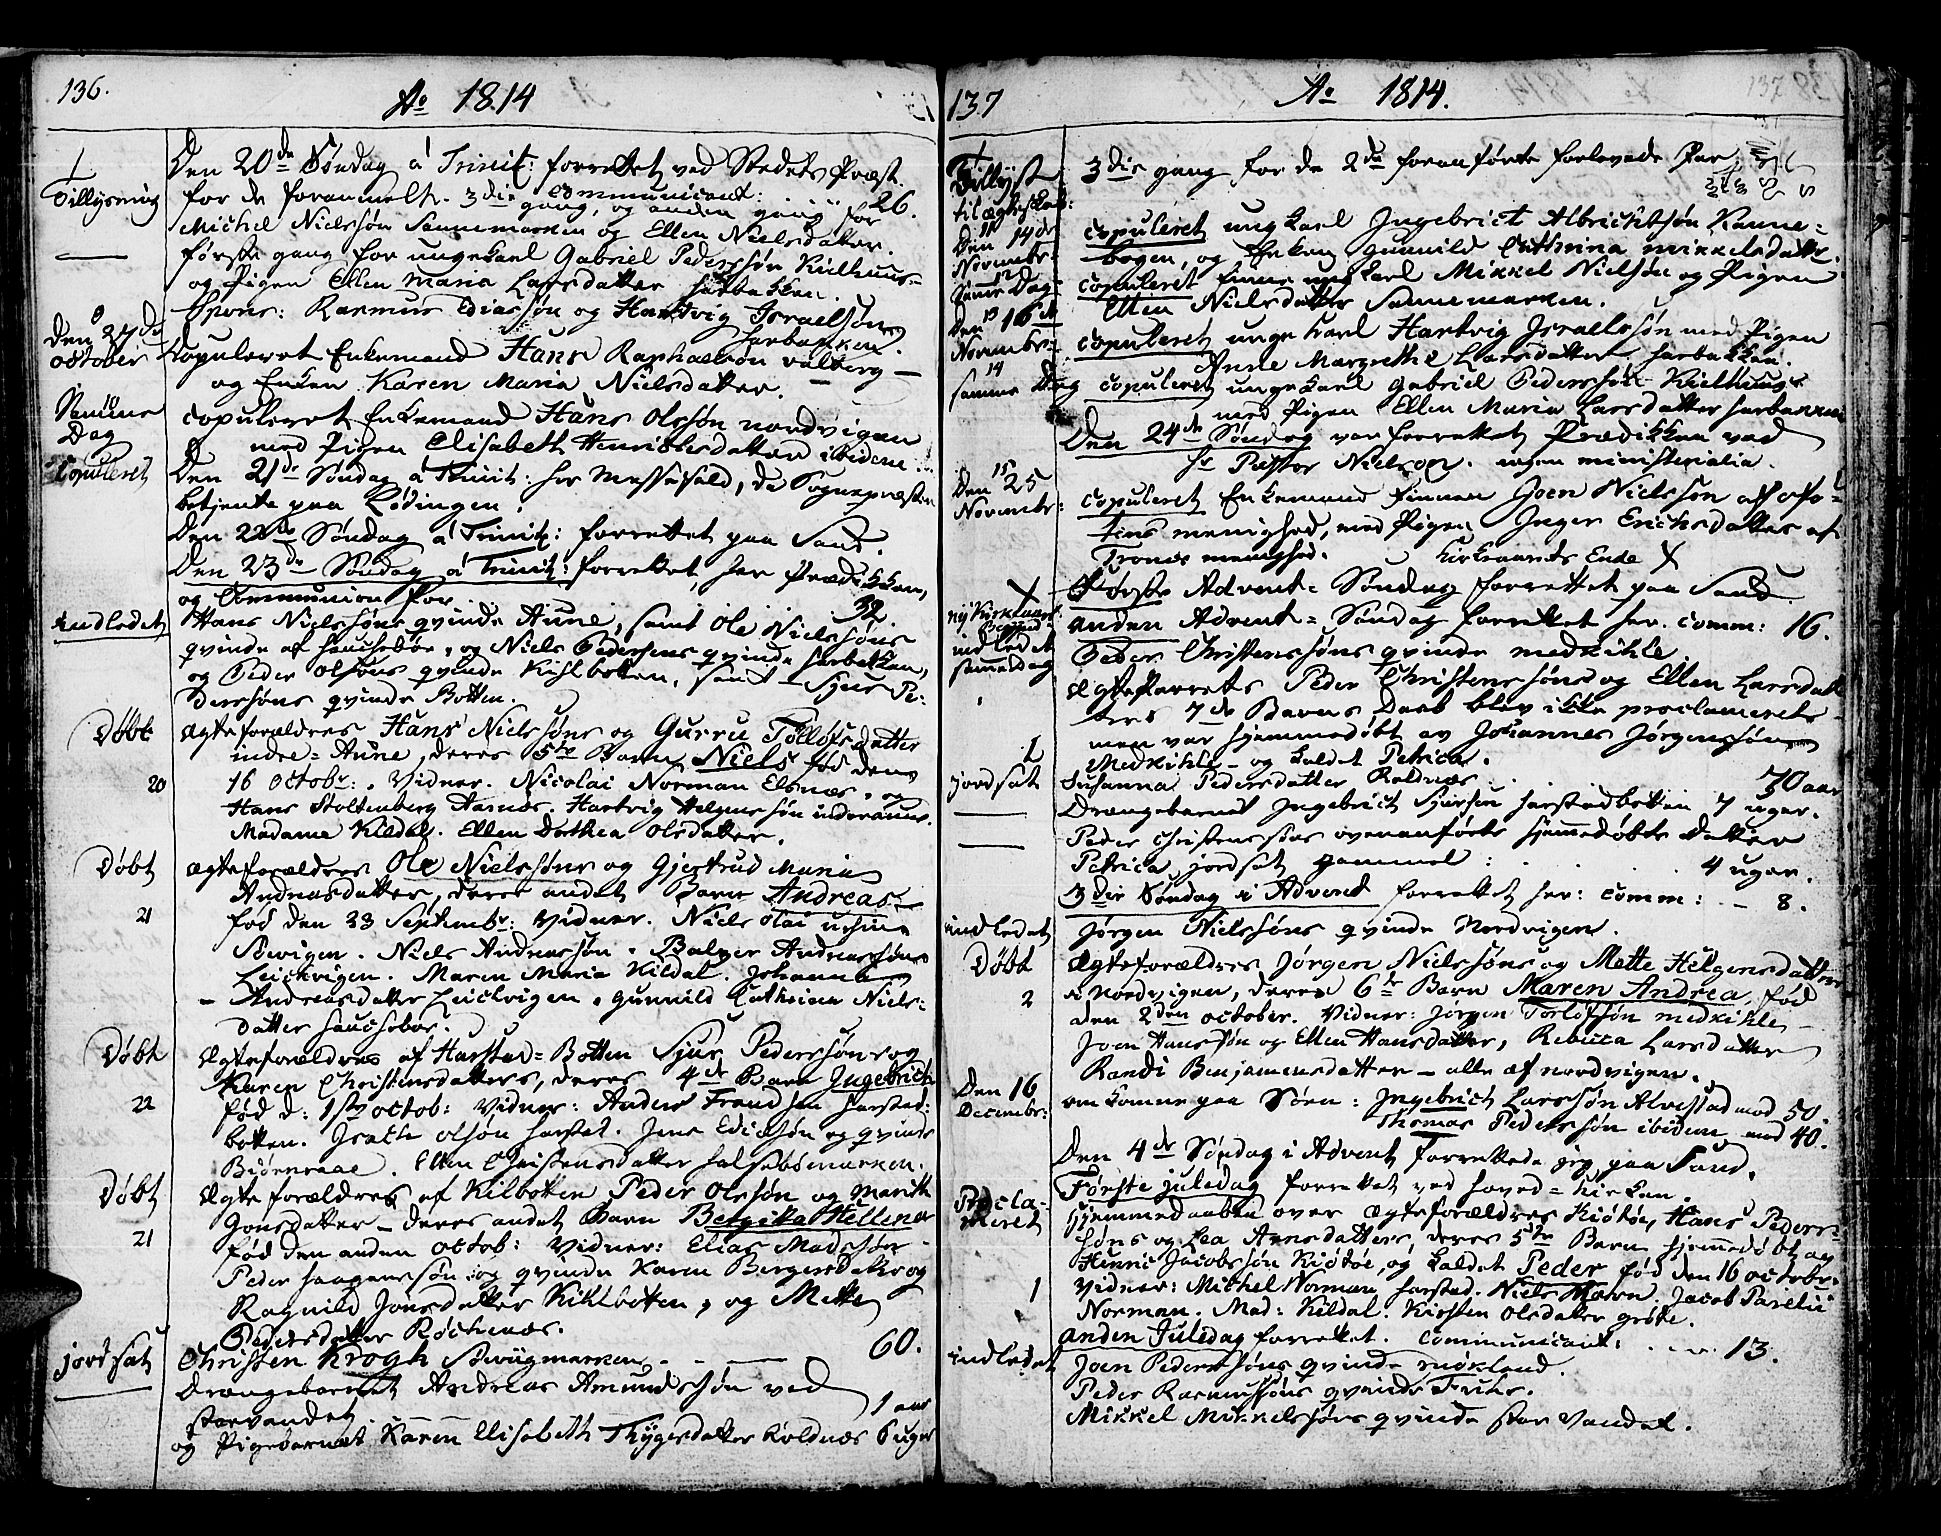 136.
Ao 1814
Den 20de Søndag á Trinit: forrettet ved Stedets Præst.
Tillysning
for de foranmelte. 3die gang, og anden gang for
communicant: 26.
Michel Nielssøn Sennemarken og Ellen Nielsdatter
første gang for ungekarl Gabriel Pederssøn Kielhuus-
og Pigen Ellen Maria Larsdatter harbakken.
Spons: Rasmus Ediassøn og Hartvig Israelssøn
harbakken.
Den 27de
october
Copuleret Enkemand Hans Raphaelsøn valberg
og Enken Karen Maria Nielsdatter.
Samme
Dag
Copuleret
copuleret Enkemand Hans Olssøn nordvigen
med Pigen Elisabeth Henrichsdatter ibidem.
Den 21de Søndag á Trinit: her Messefald, da Sognepræsten
betjente paa Lødingen.
Den 22de Søndag á Trinit: forrettet paa Sand.
Den 23de Søndag á Trinit: forrettet her Prædikken,
og Communion for 32.
indledet
Hans Nielssøns qvinde Aune, samt Ole Nielssøns
qvinde af hauchebøe, og Niels Pedersens qvinde harbakken,
og Peder Olssøns qvinde Kihlbotten, samt Sjur Pe-
derssøns qvinde Botten.
Døbt
ægteforældres Hans Nielssøns og Gurru Tolløfsdatter
indre=Aune, deres 5te Barn Niels fød den
20
16 octobr:. Vidner. Nicolai Norman Elsnæs, og
Hans Stoltenberg Aarnæs. Hartvig Helgenssøn inderaune.
Madame Kildal. Ellen Dorthea Olsdatter.
Døbt
ægteforældres Ole Nielssøns og Gjertrud Maria
Andreasdatter, deres andet Barn Andreas
21
fød den 23 Septembr: Vidner. Niels Olai ursin
Bervigen. Niels Andreassøn. Balzer Andreassøn
Leichvigen. Maren Maria Kildal. Johanna
Andreasdatter Leichvigen, gunnild Cathrina Niels-
datter hauchebøe.
Døbt
ægteforældres af Harstad=Botten Sjur Pederssøns og
Karen Christensdatters, deres 4de Barn Ingebrich
22
fød d: 1ste octob: Vidner: Anders Frandsen harstad:
botten. Israel olsøn harstat. Jens Ediassøn og qvinde
Biørnraae. Ellen Christensdatter halsebømarken.
Døbt
ægteforældres af Kilbotten Peder Olssøn og Marith
Jonsdatter - deres andet Barn Bergitha Hellena
21
fød den anden octob: Vidner: Elias Madssøn
Peder haagenssøn og qvinde Karen Bergersdatter og
Ragnild Jonsdatter Kihlbotten, og Mette
Pedersdatter Røchenæs.
jordsat
Christen Krogh Bervigmarken 60.
Drengebarnet Andreas Amundssøn ved
storvandet 1 aar
og Pigebarnet Karen Elisabeth Thygesdatter Roldnæs 6 uger
137
Ao 1814.
137
Tillyst
3die gang for de 2de foranførte forlovede Par
til ægteskab:
11
Den 14de
Novembr:
copuleret ungkarl Ingebrict Albrichtsøn Kanne=
bogen, og Enken Gunnild Cathrina Mikkelsdatter.
12
Samme Dag
copuleret finne ungkarl Mikkel Nielsøn og Pigen
Ellen Nielsdatter Sannemarken.
13
Den 16de
Novembr:
copuleret unge karl Hartvig Israelssøn med Pigen
Anne Margrethe Larsdatter harbakken.
14
samme Dag
copuleret ungekarl Gabriel Pederssøn Kielhuus
med Pigen Ellen Maria Larsdatter harbakken
Den 24de Søndag var forrettet Prædikken ved
Hr Pastor Nielson. ingen ministerialia.
15
Den 25
Novembr:
copuleret Enkemand finnen Joen Nielssøn af ofo=
tens menighed, med Pigen Inger Erichsdatter af
Tronæs menighed.
Kirkeaarets Ende
Første Advent= Søndag forrettet paa Sand.
nÿ Kirkeaar
Begynd
anden Advent= Søndag forrettet her. comm: 16.
indledet
samme dag
Peder Christenssøns qvinde medkihle.
ægteparrets Peder Christenssøns og Ellen Larsdat
ters 7de Barns Daab blev ikke proclameret
men var hjemmedøbt av Johannes Jørgenssøn
Medkihle - og kaldet Petrica.
jordsat
Susanna Pedersdatter Roldnæs 70 aar
Drengebarnet Ingebrict Sjursen harstadbotten 7 uger.
Peder Christenssøns ovenanførte hjemmedøbte datter
Petrica jordsat gammel: 4 uger.
3die Søndag i Advent forrettet her: comm: - 8.
indledet
Jørgen Nielssøns qvinde Nordvigen.
Døbt
ægteforældres Jørgen Nielssøns og Mette Helgensdatter
2
i Nordvigen, deres 6te Barn Maren Andrea, fød
den 2den october. Vidner: Jørgen Torløfsøn medkihle
Joen Hanssøn og Ellen Hansdatter, Rebecca Larsdatter
Randi Benjamensdatter - alle af nordvigen.
Den 16
Decembr:
omkomne paa Søen: Ingebrict Larssøn Alvestad mod 50.
Thomas Pederssøn ibidem mod 40.
Den 4de Søndag i Advent forrettede jeg paa Sand.
Første juledag forrettet ved hoved=kirken.
Procla-
meret
hjemmedaaben over ægteforældres Kiøtøe, Hans Peders-
søns og Lea Arnsdatters, deres 5te Barn hjemmedøbt af
Henric Jacobssøn Kiøtøe, og kaldet Peder fød den 16 octobr.
1
Vidner: Michel Norman harstad. Niels Normann. Jacob Parelius
Norman. Mad: Kildal. Kirsten Olsdatter grøtte.
anden Juledag forrettet. Communicant: 13.
indledet
Joen Pederssøns qvinde møkland.
Peder Rasmussøns qvinde Fuhr.
Mikkel Mikkelssøns qvinde stor Vandet.